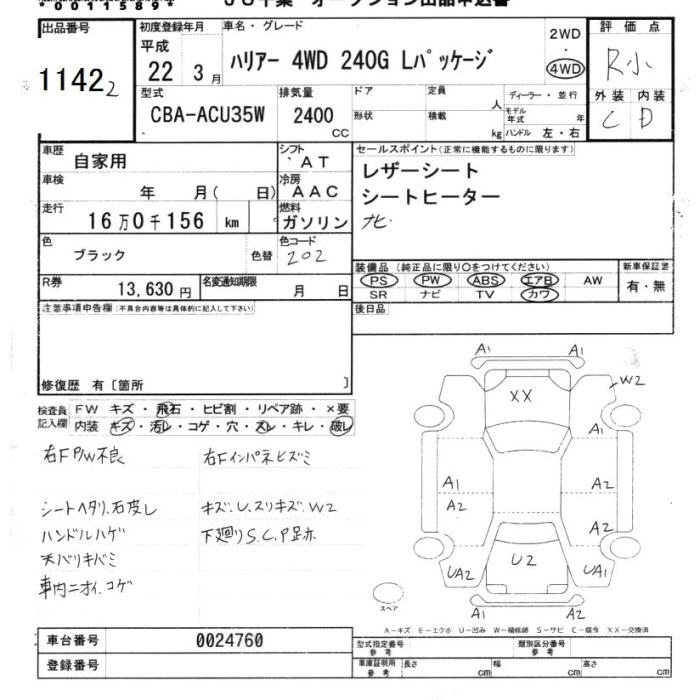 *00115894*
JU千葉 オークション出品申込書
出品番号 初度登録年月 車名・グレード 2WD・4WD 評価点
11422 平成22 3月 ハリアー 4WD 240G Lパッケージ R小
型式 排気量 ドア 定員 人 ディーラー・並行 外装 内装
CBA-ACU35W 2400 CC 形状 積載 kg モデル年式 年 ハンドル 左・右 C D
車歴 自家用 シフト AT セールスポイント(正常に機能するものに限ります)
車検 年 月( 日) 冷房 AAC レザーシート
走行 16万0千156 km 燃料 ガソリン シートヒーター
ナビ
色 ブラック 色替 色コード 202
装備品(純正品に限り○をつけてください) 新車保証書
R券 13,630円 名変通知期限 月 日 PS PW ABS エアB AW 有・無
SR ナビ TV カワ
注意事項申告欄(不具合内容等は具体的に記入して下さい) 後日品
修復歴 有〔箇所 〕
検査員記入欄 FW キズ・飛石・ヒビ割・リペア跡・×要
内装 キズ・汚レ・コゲ・穴・スレ・キレ・破レ
右F P/W不良 右Fインパネヒズミ
シートヘタリ、右皮し キズ.U.スリキズ.W2
ハンドルハゲ 下廻りS.C.P足跡
天バリキバミ
車内ニオイ.コゲ
A1 A1
XX W2
A1
A1 A2
A2 A2
UA2 U2 UA1
スペア A1 A2
A-キズ E-エクボ U-凹み W-補修跡 S-サビ C-腐食 XX-交換済
車台番号 0024760 型式指定番号 参考 類別区分番号 参考
登録番号 車庫証明用 参考 長さ cm 幅 cm 高さ cm